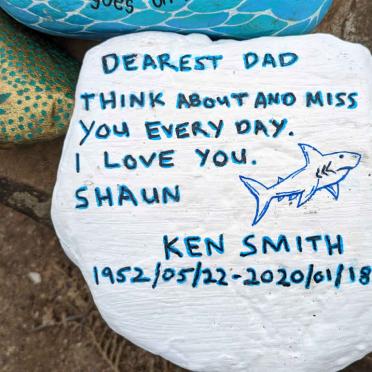 goes on
DEAREST DAD
THINK ABOUT AND MISS
YOU EVERY DAY.
I LOVE YOU.
SHAUN
KEN SMITH
1952/05/22-2020/01/18